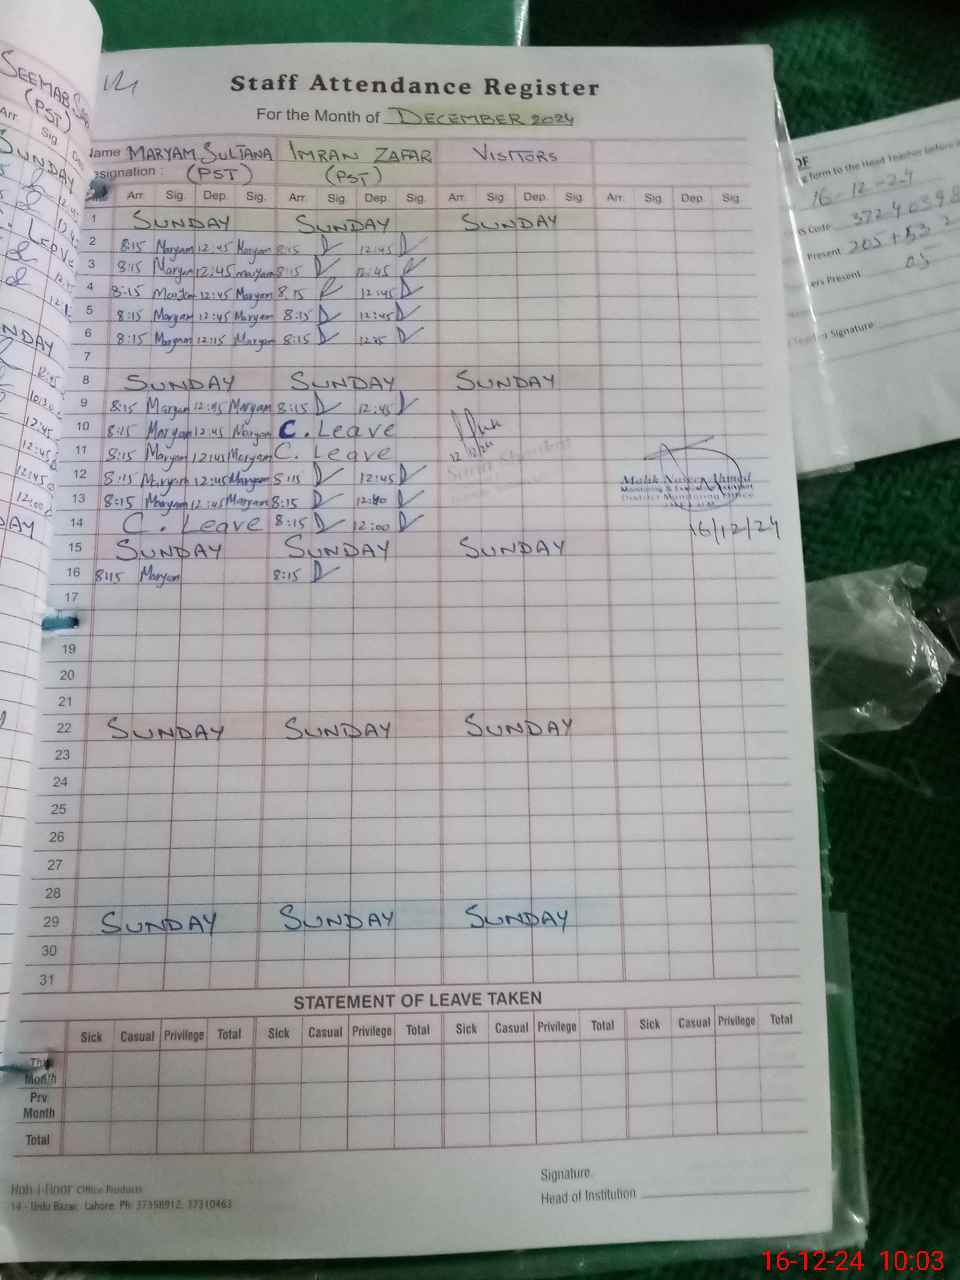 SEEMAB
(PST)
Arr. Sig
SUNDAY
Staff Attendance Register
For the Month of DECEMBER 2024
Name MARYAM SULTANA IMRAN ZAFAR VISITORS
esignation : (PST) (PST)
Arr. Sig. Dep. Sig. Arr. Sig. Dep. Sig. Arr. Sig. Dep. Sig. Arr. Sig. Dep. Sig
1 SUNDAY SUNDAY SUNDAY
2 8:15 Maryam 12:45 Maryam 8:15 12:45
3 8:15 Maryam 12:45 maryam 8:15 12:45
4 8:15 12:45 Maryam 8:15 12:45
5 8:15 Maryam 12:45 Maryam 8:15 12:45
6 8:15 Maryam 12:15 Maryam 8:15
7
8 SUNDAY SUNDAY SUNDAY
9 8:15 Maryam 12:45 Maryam 8:15 12:45
10 8:15 Maryam 12:45 Maryam C. Leave
11 8:15 Maryam 12:45 Maryam C. Leave
12/12/24
12 8:15 Maryam 12:45 Maryam 8:15 12:45
13 8:15 Maryam 12:45 Maryam 8:15
14 C. Leave 8:15 12:00
16/12/24
15 SUNDAY SUNDAY SUNDAY
16 8:15 Maryam 8:15
17
19
20
21
22 SUNDAY SUNDAY SUNDAY
23
24
25
26
27
28
29 SUNDAY SUNDAY SUNDAY
30
31
STATEMENT OF LEAVE TAKEN
Sick Casual Privilege Total Sick Casual Privilege Total Sick Casual Privilege Total Sick Casual Privilege Total
Month
Prv.
Month
Total
Office Products
14 - Urdu Bazar, Lahore. Ph: 37358912, 37310463
Signature.
Head of Institution
form to the Head Teacher before
16-12-24
s Code
Present
ers Present 05
Teacher Signature:
16-12-24 10:03